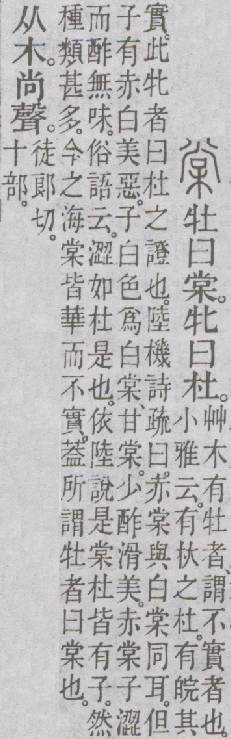 棠 牡曰棠。牝曰杜。
艸木有牡者、謂不實者也。
小雅云。有杕之杜。有睆其
實。此牝者曰杜之證也。陸機詩疏曰。赤棠與白棠同耳。但
子有赤白美惡。子白色爲白棠、甘棠。少酢滑美。赤棠子澀
而酢無味。俗語云。澀如杜是也。依陸說是棠杜皆有子。然
種類甚多。今之海棠皆華而不實。蓋所謂牡者曰棠也。
从木尚聲。
徒郎切。
十部。